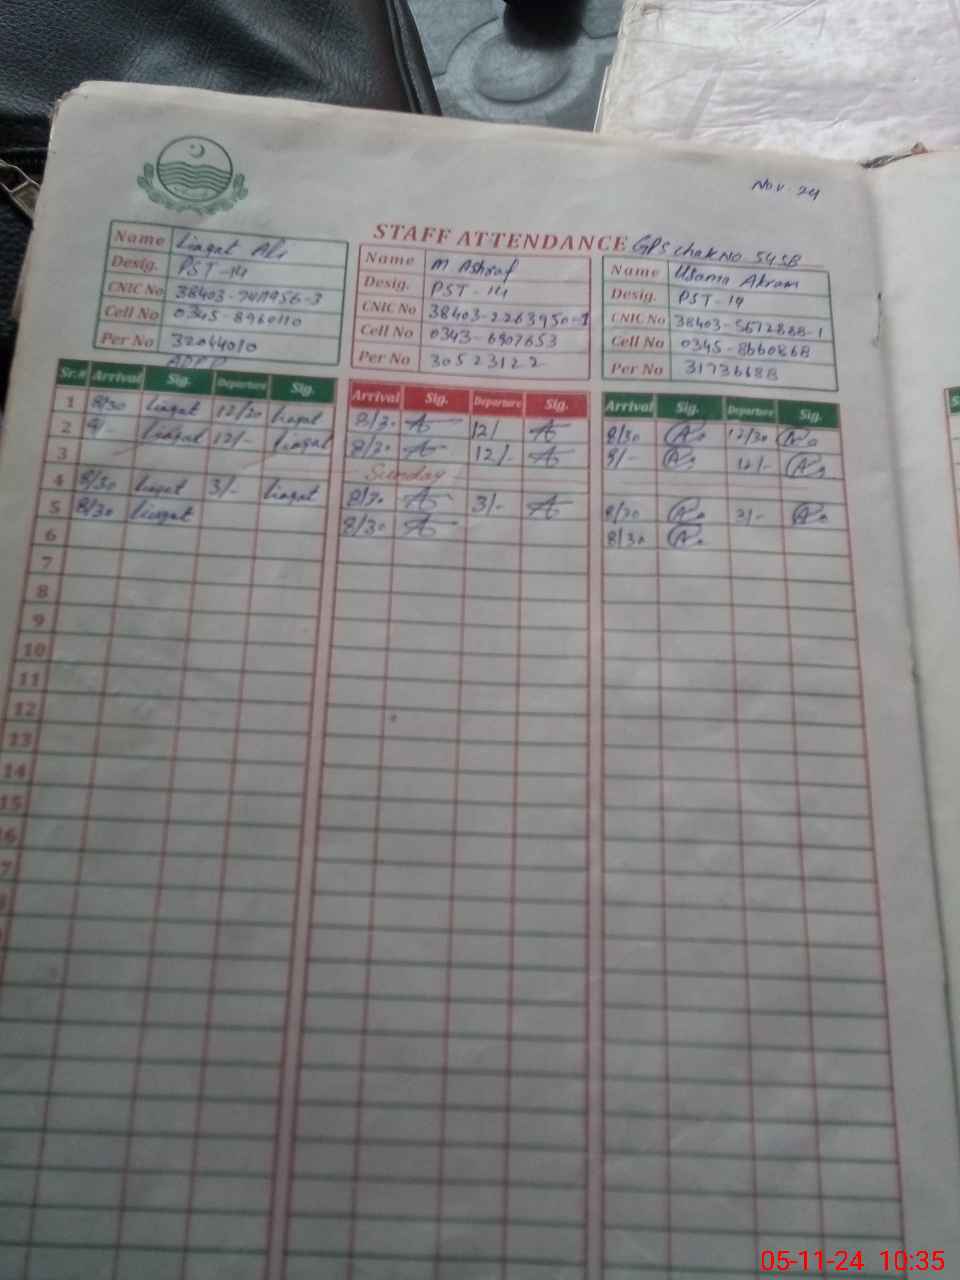 Nov. 24
STAFF ATTENDANCE GPS chak No 54SB
Name Liaqat Ali
Desig. PST-14
CNIC No
Cell No 0345-8960110
Per No 32044010
Name M Ashraf
Desig. PST-14
CNIC No 38403-2263950-1
Cell No 0343-6907653
Per No 30523122
Name Usama Akram
Desig. PST-14
CNIC No 38403-5612868-1
Cell No 0345-8660868
Per No 31736688
Sr.# Arrival Sig. Departure Sig. Arrival Sig. Departure Sig. Arrival Sig. Departure Sig.
1 8/30 Liaqat 12/30 Liaqat 8/30 12/ 8/30 12/30
2 9/- Liaqat 12/- Liaqat 8/30 12/- 9/- 12/-
3 Sunday
4 8/30 Liaqat 3/- Liaqat 8/30 3/- 8/30 3/-
5 8/30 Liaqat 8/30 8/30
6
7
8
9
10
11
12
13
14
15
16
17
05-11-24 10:35